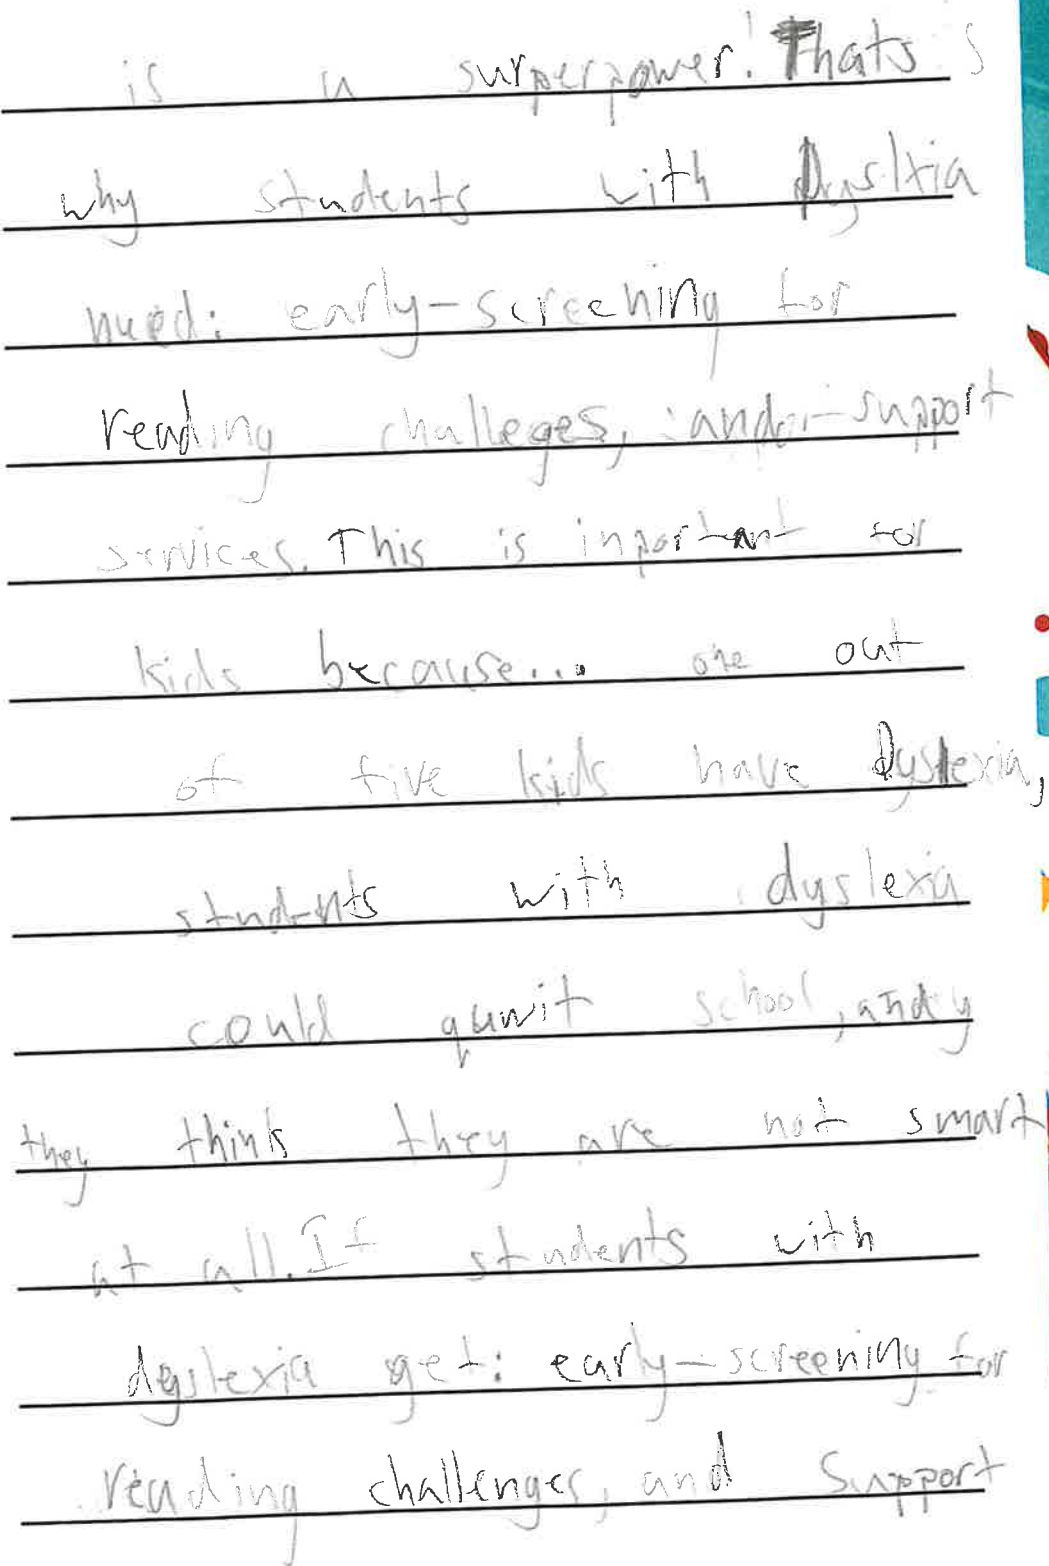 is a surperpower! Thats
why students with Dysltia
need: early-screening for
reading challeges, and support
services. This is inportant for
kids because... one out
of five kids have Dyslexia,
students with dyslexia
could quwit school, and
they think they are not smart
at all. If students with
dyslexia get: early-screening for
reading challenges, and Support